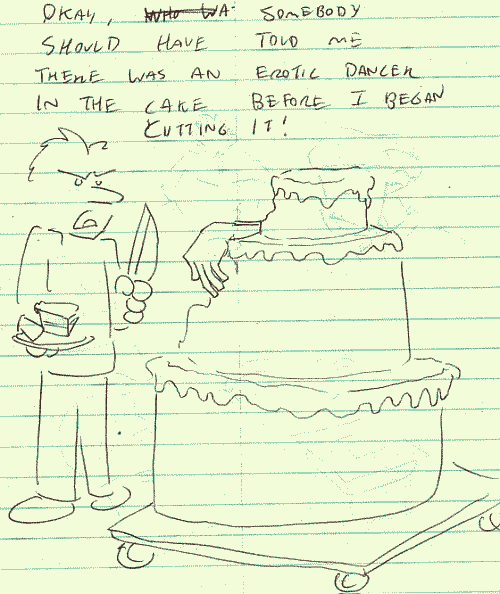 OKAY, WHO WA SOMEBODY
SHOULD HAVE TOLD ME
THERE WAS AN EROTIC DANCER
IN THE CAKE BEFORE I BEGAN
CUTTING IT!